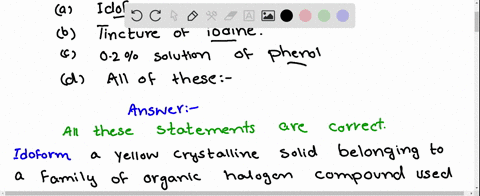 (a) Idof
(b) Tincture of iodine.
(c) 0.2% solution of phenol
(d) All of these:-
Answer:-
All these statements are correct.
Idoform a yellow crystalline solid belonging to
a family of organic halogen compound used